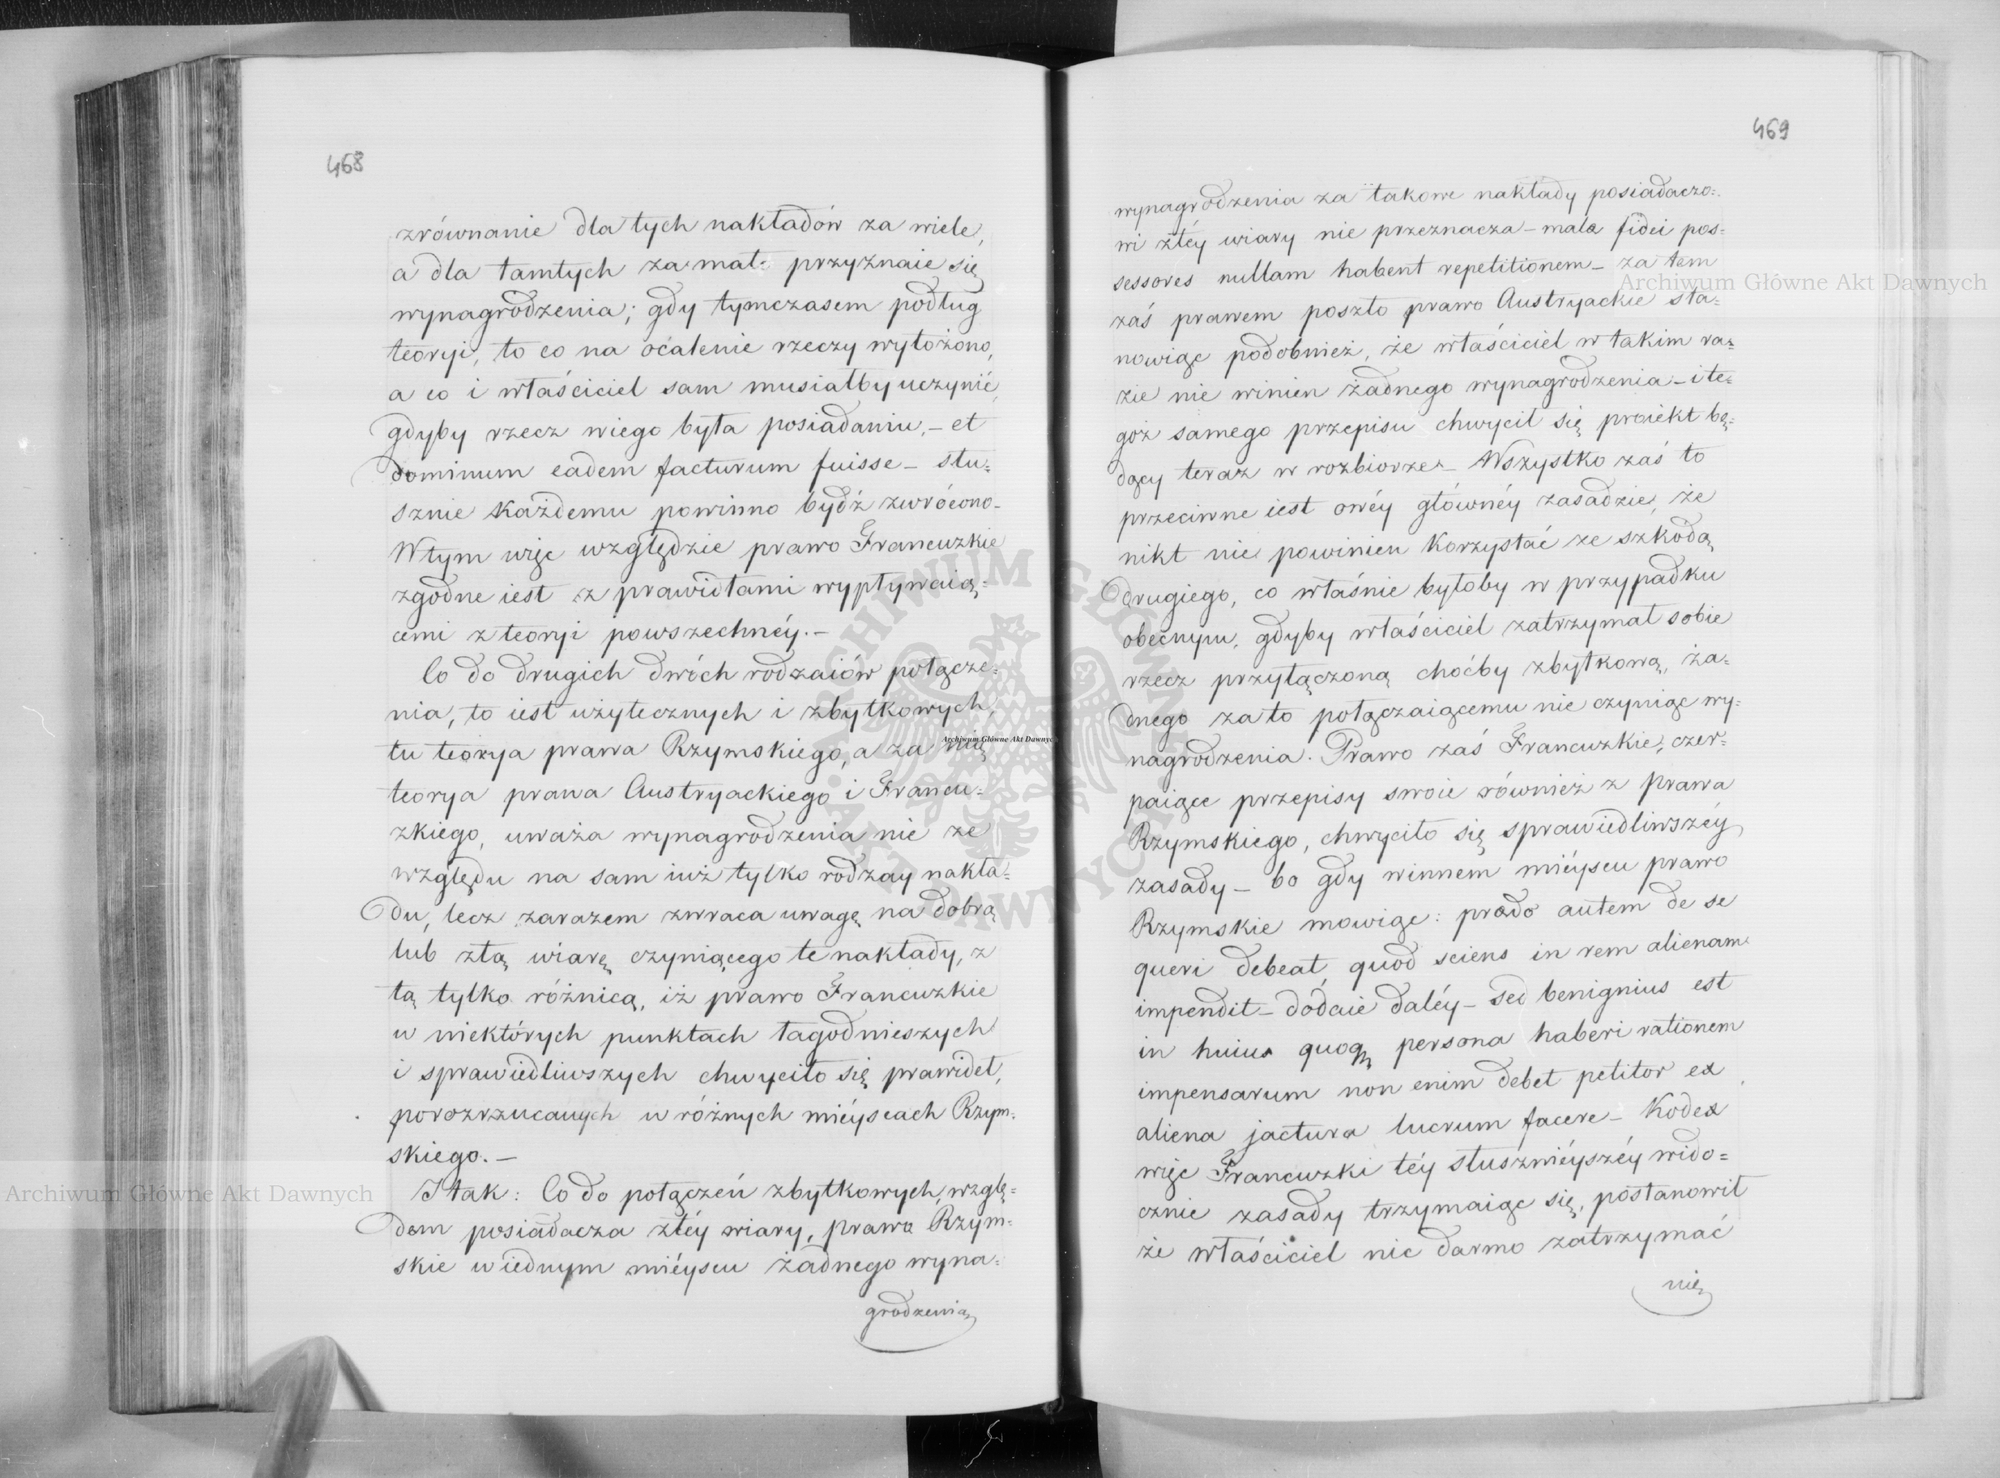 468
zrównanie dla tych nakładów za wiele,
a dla tamtych za mało przyznaie się
wynagrodzenia; gdy tymczasem podług
teoryi, to co na ocalenie rzeczy wyłożono,
a co i właściciel sam musiałby uczynić,
gdyby rzecz wiego była posiadaniu, – et
dominum eadem facturum fuisse – słu=
sznie każdemu powinno bydź zwrócono –
W tym więc względzie prawo Francuzkie
zgodne iest z prawidłami wypływaią=
cemi z teoryi powszechnéy. –
Co do drugich dwóch rodzaiów połącze=
nia, to iest użytecznych i zbytkowych,
tu teorya prawa Rzymskiego, a za nią
teorya prawa Austryackiego i Francu=
zkiego, uważa wynagrodzenia nie ze
względu na sam iuż tylko rodzay nakła=
du, lecz zarazem zwraca uwagę na dobrą
lub złą wiarę czyniącego te nakłady, z
tą tylko różnicą, iż prawo Francuzkie
w niektórych punktach łagodnieszych
i sprawiedliwszych chwyciło się prawideł,
porozrzucanych w różnych miéyscach Rzym=
skiego. –
I tak: Co do połączeń zbytkowych, wzglę=
dem posiadacza złéy wiary, prawo Rzym=
skie w iednym miéyscu żadnego wyna=
grodzenia
469
wynagrodzenia za takowe nakłady posiadaczo=
wi złéy wiary nie przeznacza – mala fidei pos=
sessores nullam habent repetitionem – za tem
zaś prawem poszło prawo Austryackie sta=
nowiąc podobnież, że właściciel w takim ra=
zie nie winien żadnego wynagrodzenia – i te=
goż samego przepisu chwycił się proiekt bę=
dący teraz w rozbiorze – Wszystko zaś to
przeciwne iest owéy głównéy zasadzie, że
nikt nie powinien korzystać ze szkodą
drugiego, co właśnie byłoby w przypadku
obecnym, gdyby właściciel zatrzymał sobie
rzecz przyłączoną choćby zbytkową, ża=
dnego za to połączaiącemu nie czyniąc wy=
nagrodzenia. Prawo zaś Francuzkie, czer=
paiące przepisy swoie również z prawa
Rzymskiego, chwyciło się sprawiedliwszéy
zasady – bo gdy winnem miéyscu prawo
Rzymskie mowiąc: prado autem de se
queri debeat quod sciens in rem alienam
impendit – dodaie daléy – sed benignius est
in huius quoq persona haberi rationem
impensarum non enim debet petitor ex
aliena jactura lucrum facere – Kodex
więc Francuzki téy słuszniéyszéy wido=
cznie zasady trzymaiąc się, postanowił
że właściciel nie darmo zatrzymać
nie
Archiwum Główne Akt Dawnych
Archiwum Główne Akt Dawnych
Archiwum Główne Akt Dawnych
ARCHIWUM GŁÓWNE AKT DAWNYCH